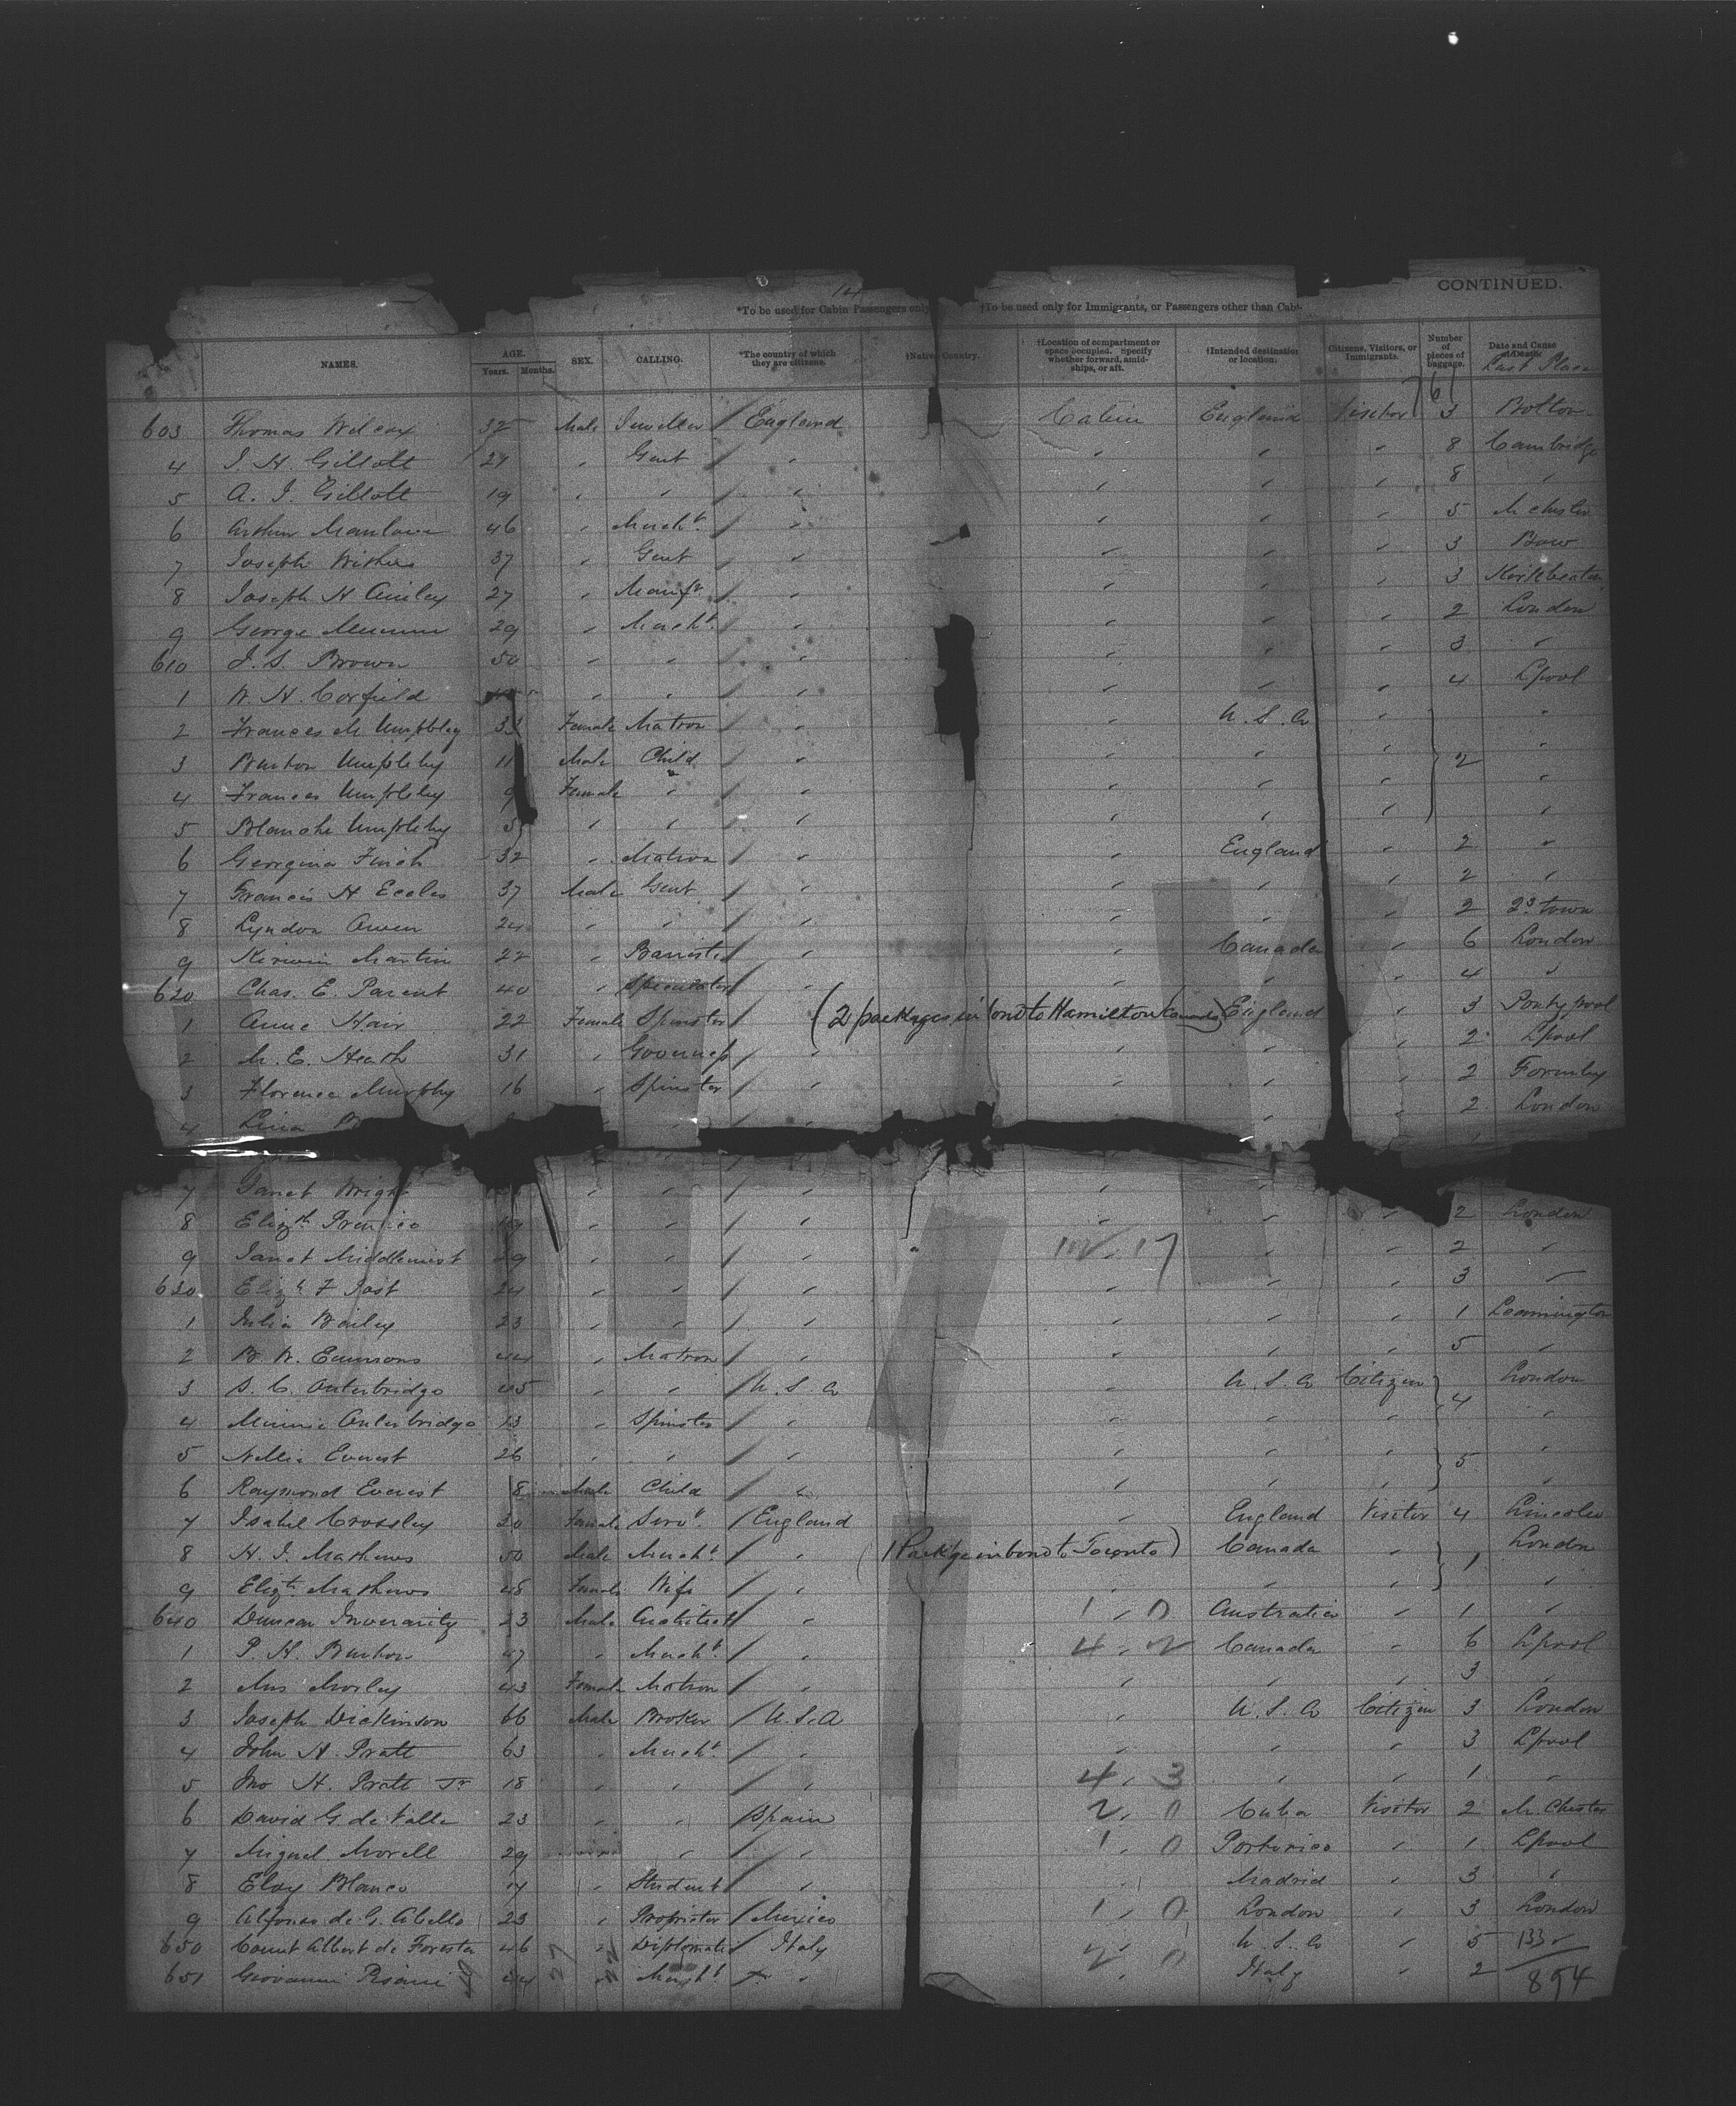 14
CONTINUED.
*To be used for Cabin Passengers only †To be used only for Immigrants, or Passengers other than Cabi
NAMES. AGE. Years. Months. SEX. CALLING. *The country of which they are citizens. †Native Country. †Location of compartment or space occupied. Specify whether forward, amidships, or aft. †Intended destination or location. Citizens, Visitors, or Immigrants. Number of pieces of baggage. Date and Cause of Death. Last Place
761
603 Thomas Wilcox 35 Male Jeweller England Cabin England Visitor 3 Bolton
4 J. H. Gillott 27 " Gent " " " " 8 Cambridge
5 A. J. Gillott 19 " " " " " " 8 "
6 Arthur 46 " Mercht. " " " " 5 M chester
7 Joseph 37 " Gent " " " " 3 Bow
8 Joseph H Ainley 27 " Manfr. " " " " 3 Kirkheaton
9 George 29 " Mercht. " " " " 2 London
610 J. S. Brown 50 " " " " " " 3 "
1 W. H. Corfield " " " " " " 4 Lpool
2 Frances M. Umpleby 33 Female Matron " " U.S.A " "
3 Burton Umpleby 11 Male Child " " " " 2 "
4 Frances Umpleby 9 Female " " " " " "
5 Blanche Umpleby 5 " " " " " " "
6 Georgina Finch 32 " Matron " " England " 2 "
7 Francis H Eccles 37 Male Gent " " " " 2 "
8 Lyndon Owen 24 " " " " " " 2 town
9 Kirwin Martin 22 " Barrister " " Canada " 6 London
620 Chas. E. Parent 40 " Speculator " " " " 4 "
1 Anne Hair 22 Female Spinster " (2 packages in bond to Hamilton Canada) England " 3 Pontypool
2 M. E. Heath 31 " Governess " " " " 2 Lpool
3 Florence Murphy 16 " Spinster " " " " 2 Formby
4 " " " " 2 London
7 Janet Wright " " " " " "
8 Elizth " " " " " " 2 London
9 Janet Middlemist 29 " " " 17 " " 2 "
630 Elizh F Jost 24 " " " " " " 3 "
1 Julia Bailey 23 " " " " " " 1 Leamington
2 B. W. Emmsons 44 " Matron " " " " 5 "
3 S. C. Outerbridge 45 " " U.S.A " U.S.A Citizen 4 London
4 Minnie Outerbridge 13 " Spinster " " " " "
5 Nellie Everest 26 " " " " " " 5 "
6 Raymond Everest 8 Male Child " " " " "
7 Isabel Crossley 30 Female Servt. England " England Visitor 4 Lincoln
8 H. J. Mathews 50 Male Mercht. " (1 Package in bond to Toronto) Canada " 1 London
9 Elizth Mathews 48 Female Wife " " " " "
640 Duncan Inverarity 23 Male Architect " 1 , 0 Australia " 1 "
1 P. H. Burton 47 " Mercht. " 4 , 2 Canada " 6 Lpool
2 Mrs Morley 43 Female Matron " " " " 3 "
3 Joseph Dickinson 66 Male Broker U.S.A " U.S.A Citizen 3 London
4 John H. Pratt 63 " Mercht. " " " " 3 Lpool
5 Jno H. Pratt Jr 18 " " " 4 , 3 " " 1 "
6 David G. de Valle 23 " " Spain 2 , 0 Cuba Visitor 2 M. Chester
7 Miguel Morell 29 " " " 1 , 0 Portorico " 1 Lpool
8 Eloy Blanco 17 " Student " " Madrid " 3 "
9 Alfonso de G. Abello 23 " Proprietor Mexico 1 , 0 London " 3 London
650 Count Albert de Foresta 46 " Diplomatic Italy 2 , 0 U.S.A " 5 133
651 Giovanni Pisani 44 " Mercht " " Italy " 2 894